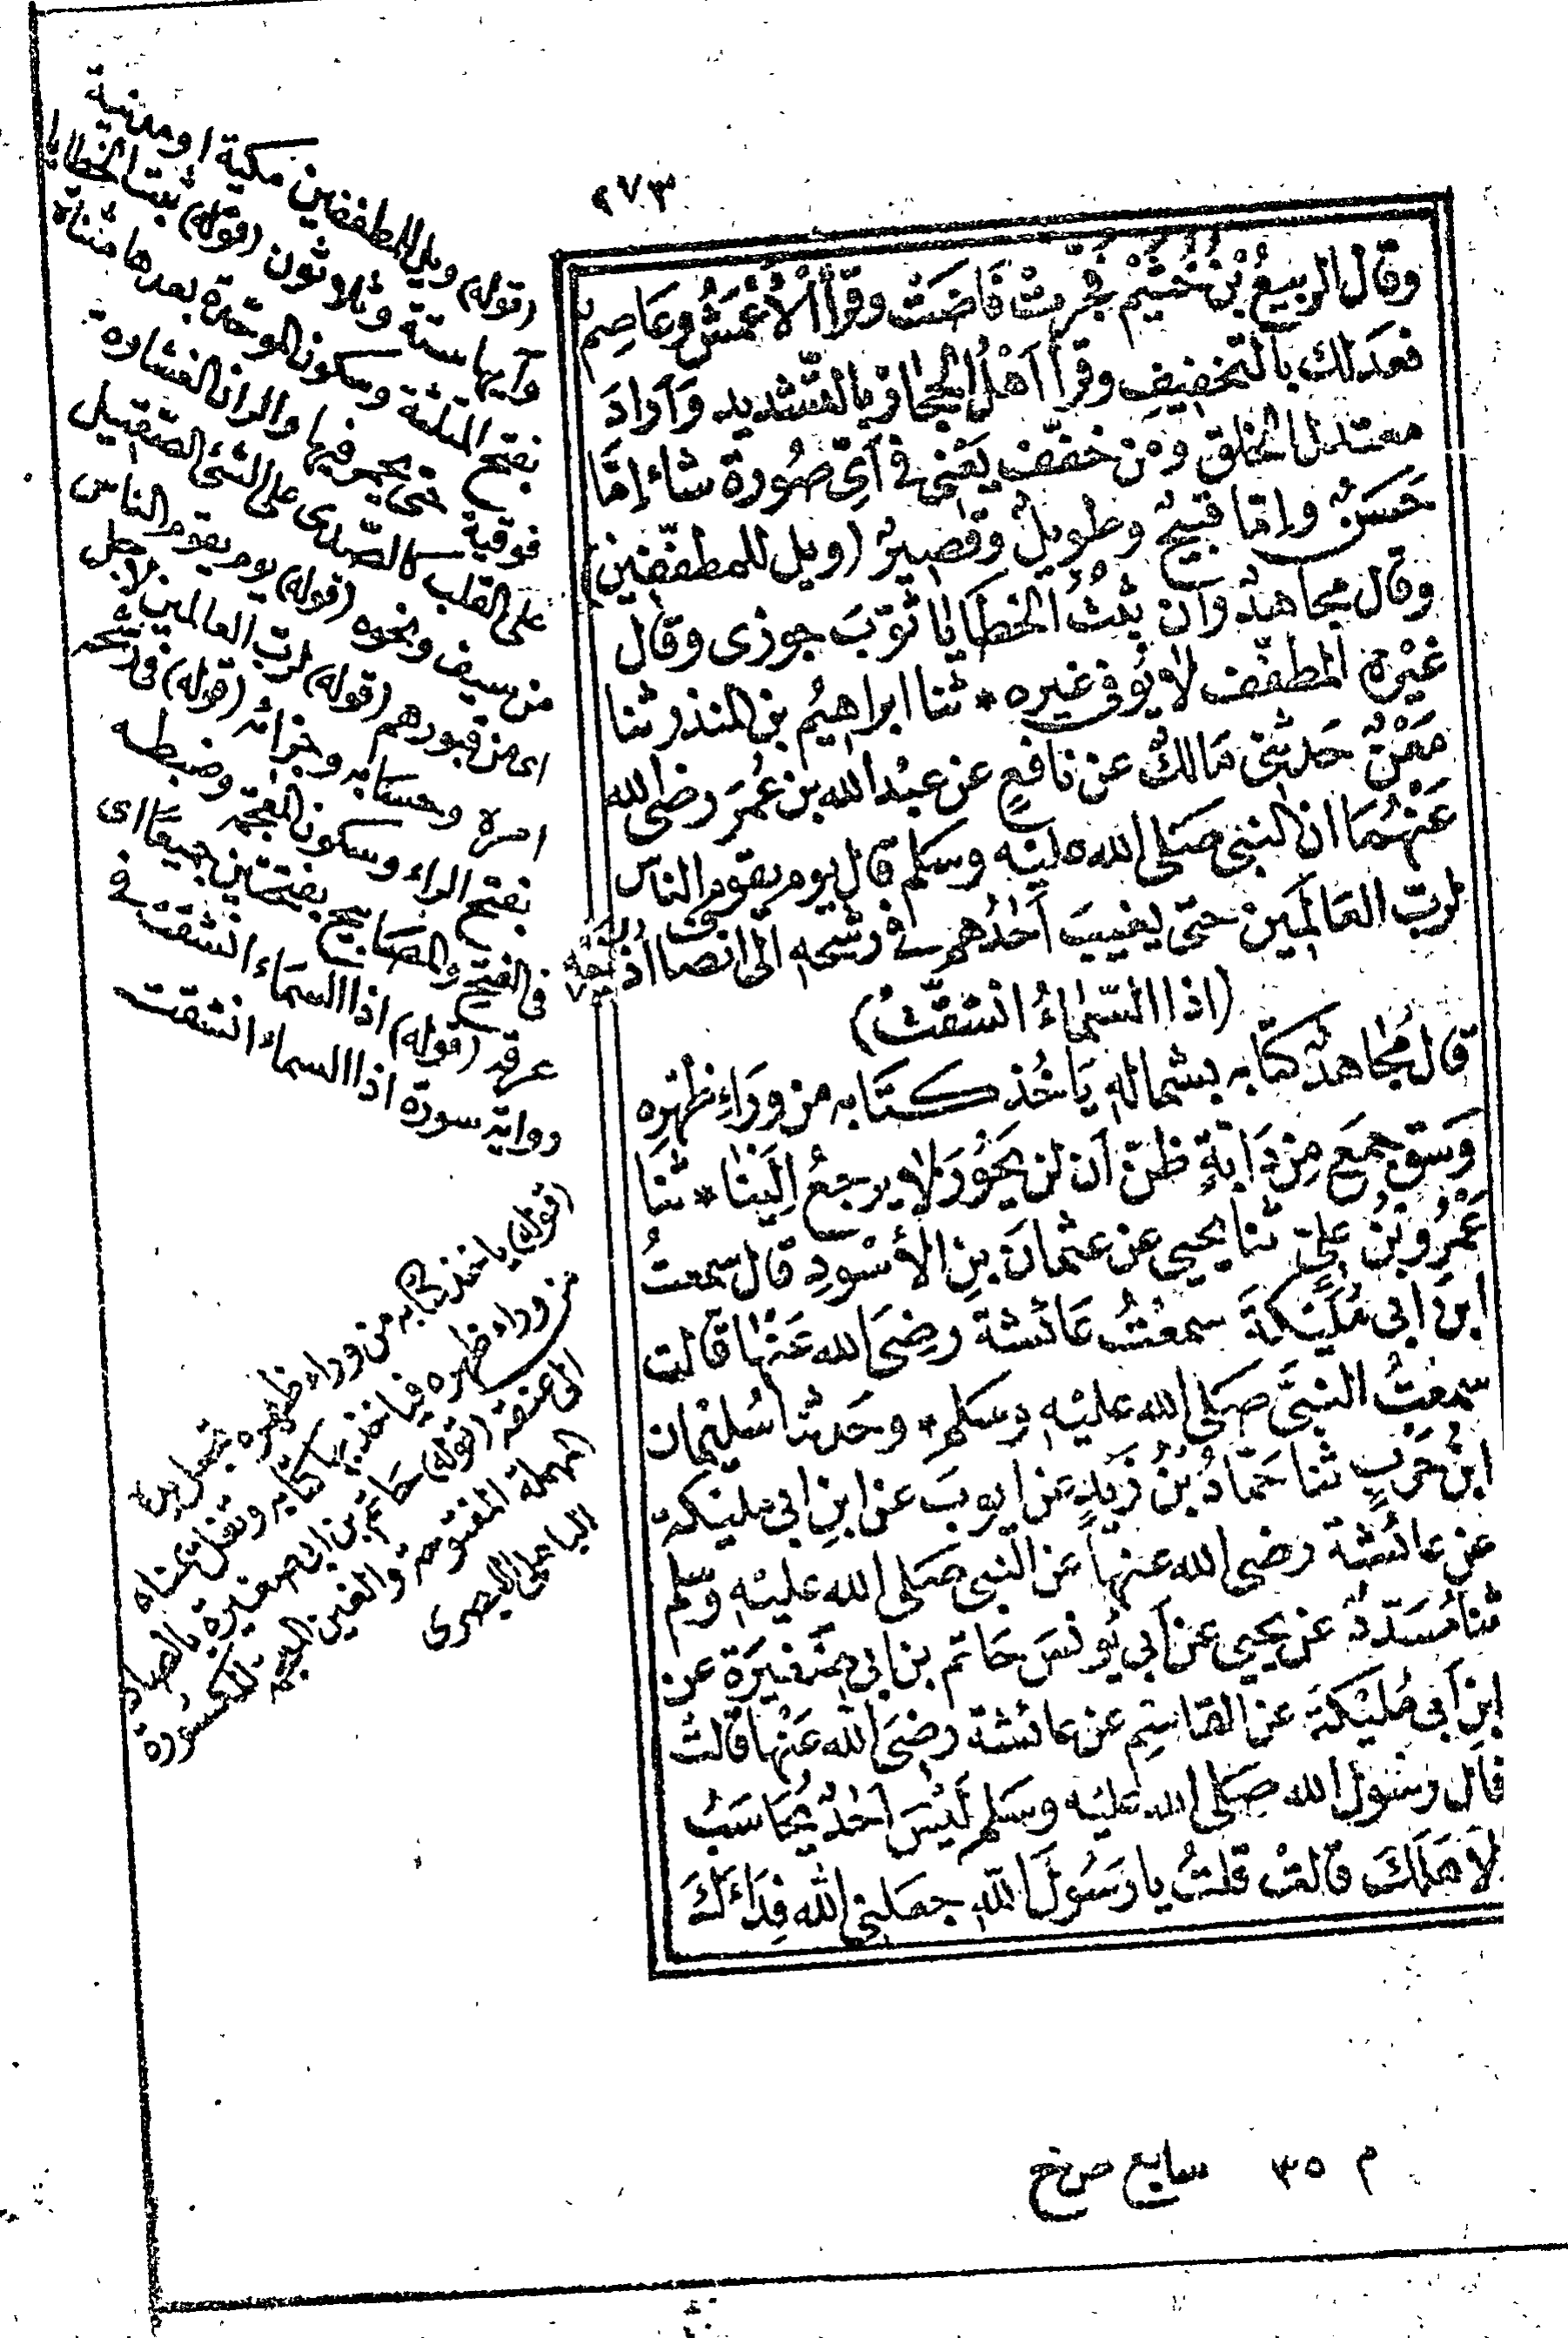 ٩٧٣
وقال الربيعُ بْنُ خُثَيْمٍ فُجِّرَتْ فَاضَتْ وقَرأ الأَعْمَشُ وعَاصِمٌ
فعَدَلك بالتخفيفِ وقرأ اَهْلُ الحِجَازِ بالتّشديدِ وَاَرادَ
معتدل الخلق ومن خفّف يَعْنى فى اَىّ صُورة شاء إمّا
حَسَنٌ واِمّا قبيحٌ وطويلٌ وقصيرٌ (ويل للمطفّفِين)
وقال مجاهدٌ رَانَ ثبْتُ الخطَايا ثوّبَ جوزى وقال
غيْرُه المطفّف لا يُوفى غيره * ثنا ابراهيمُ بن المنذر ثنا
مَعْنٌ حَدثنى مَالكٌ عن نافعٍ عن عبْد الله بن عُمَرَ رضى الله
عَنْهُمَا ان النبى صَلى الله عليْه وسَلم قال يوم يقوم الناس
لربّ العَالمَين حتى يغيبَ اَحَدُهم فى رشحه الى انصاف اُذنيه
(اذا السّمَاءُ انشقّتْ)
قال مُجاهدٌ كتابه بشماله يَاخُذ كتَابه من وراءِ ظهْرِه
وَسَقَ جمَعَ مِن دَابةٍ ظنّ اَن لن يَحُورَ لا يرجعُ اِلَيْنا * ثنا
عَمْرُو بْنُ عَلىٍّ ثنا يحيى عن عثمانَ بنِ الأسْوَدِ قال سمعتُ
ابنَ اَبى مُليْكةَ سمعْتُ عَائشة رضِىَ الله عَنْها قالت
سمعْتُ النبىَّ صَلى الله عليْه وسَلم * وحَدثنا سُليْمان
ابنُ حَرْبٍ ثنا حَمّادُ بْنُ زَيْدٍ عَن ايوبَ عن ابنِ ابى مليْكة
عن عائشة رضى الله عنها عن النبى صَلى الله عليْه وسَلم
ثنا مُسَدّدٌ عن يحيى عن اَبى يُونسَ حَاتم بن ابى صَغيرَة عن
ابنِ اَبى مُليْكةَ عن القاسِمِ عن عائشة رضِىَ الله عَنْها قالتْ
قال رسُول الله صَلى الله عليْه وسَلم لَيْسَ اَحَدٌ يُحَاسَبُ
الا هَلَكَ قالتْ قلتُ يا رَسُولَ اللهِ جعَلنى الله فِدَاءَكَ
(قوله) ويل للمطففين مكية او مدنية
وآيها ستة وثلاثون (قوله) ثبت الخطايا
بفتح المثلثة وسكون الموحدة بعدها مثناة
فوقية حتى يغمرها والران الغشاوة
على القلب كالصّدى على الشئ الصقيل
من سيف ونحوه (قوله) يوم يقوم الناس
اى من قبورهم (قوله) لرب العالمين لاجل
امره وحسابه وجزائه (قوله) فى رشحه
بفتح الراء وسكون المعجمة وضبطه
فى الفتح والمصابيح بفتحتين جميعًا اى
عرقه (قوله) اذا السماء انشقت فى
رواية سورة اذا السماء انشقت
(قوله) ياخذ كتابه من وراء ظهره تجعل يده
من وراء ظهره فياخذ بها كتابه وتغل يمناه
الى عنقه (قوله) حاتم بن ابى صغيرة بالصاد
المهملة المفتوحة والغين المعجمة المكسورة
الباهلى البصرى
م ٣٥ سابع ص خ